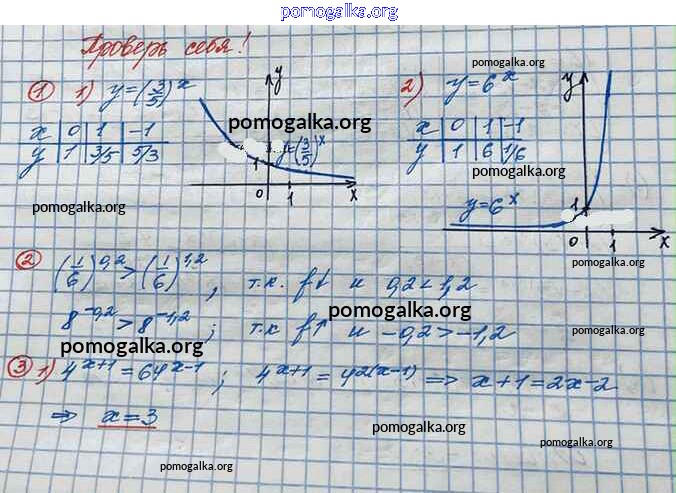 pomogalka.org
Проверь себя!
pomogalka.org
① 1) y=(3/5)^x
y
pomogalka.org
y=(3/5)^x
1
0 1 x
x | 0 | 1 | -1
y | 1 | 3/5 | 5/3
pomogalka.org
2) y=6^x
y
x | 0 | 1 | -1
y | 1 | 6 | 1/6
pomogalka.org
y=6^x
1
0 1 x
pomogalka.org
② (1/6)^0,2 > (1/6)^1,2, т.к. f↓ и 0,2<1,2
pomogalka.org
8^-0,2 > 8^-1,2; т.к f↑ и -0,2>-1,2
pomogalka.org
pomogalka.org
③ 1) 4^x+1 = 64^x-1; 4^x+1 = 4^2(x-1) ⇒ x+1=2x-2
⇒ x=3
pomogalka.org
pomogalka.org
pomogalka.org